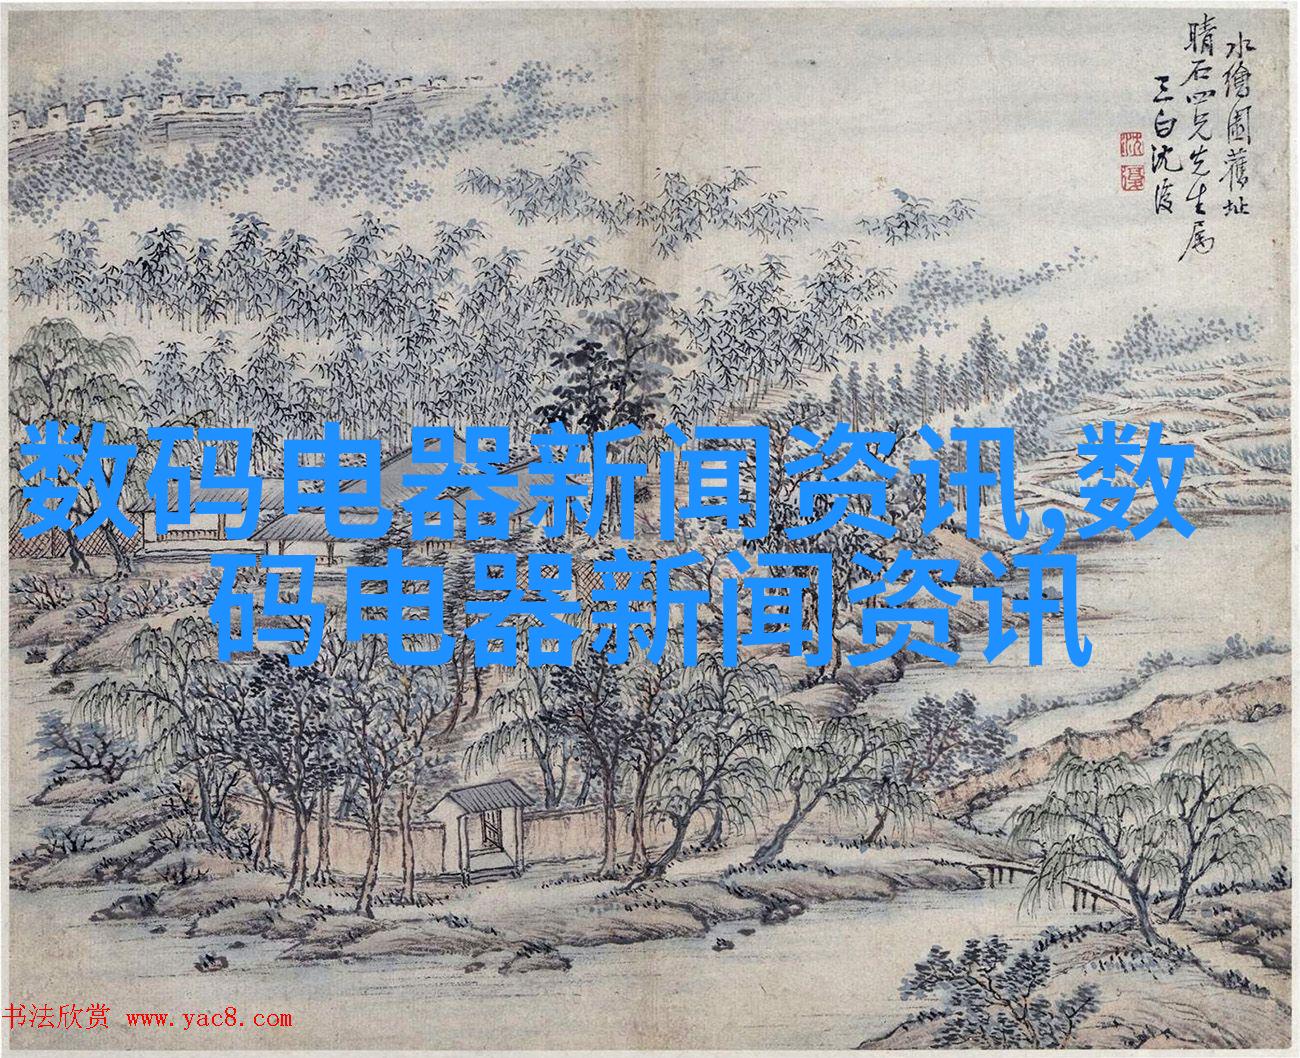 水繪園舊址
晴石四兄先生属
三白沈復
沈
復
数码电器新闻资讯,数
码电器新闻资讯
书法欣赏 www.yac8.com